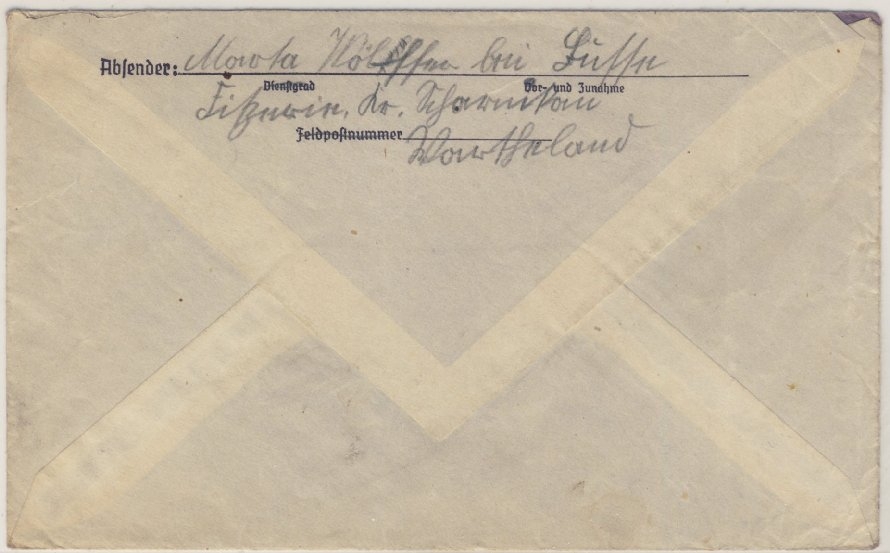 Absender: Marta bei Busse
Dienstgrad Vor- und Zuname
Kr. Scharnikau
Feldpostnummer
Wartheland